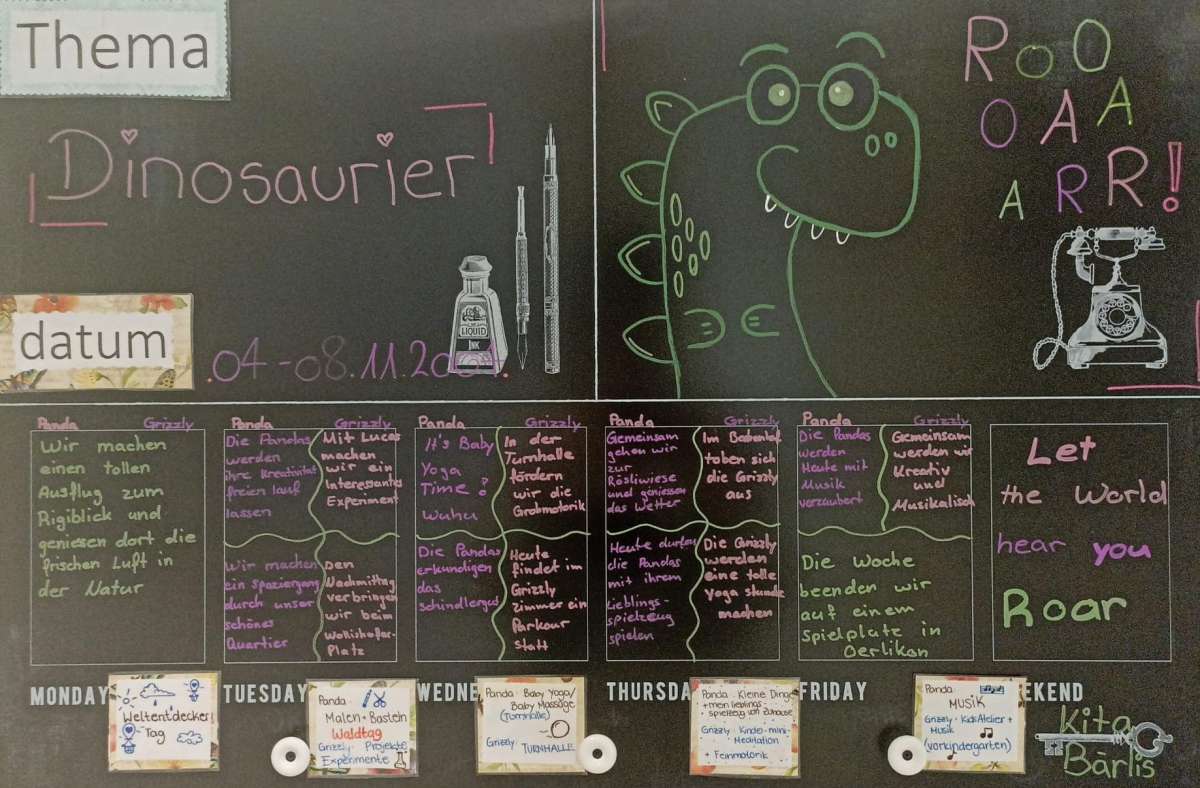 Thema
Dinosaurier
RoO
OAA
ARR!
LIQUID
INK
datum
.04-08.11.2024.
Panda Grizzly
Wir machen
einen tollen
Ausflug zum
Rigiblick und
geniesen dort die
frischen Luft in
der Natur
Panda Grizzly
Die Pandas
werden
ihre Kreativität
freien lauf
lassen
Mit Lucas
machen
wir ein
Interessantes
Experiment
Wir machen
ein Spaziergang
durch unser
schönes
Quartier
Den
Nachmittag
verbringen
wir beim
Wollishofer-
Platz
Panda Grizzly
It's Baby
Yoga
Time!
Wuhu
In der
Turnhalle
fördern
wir die
Grobmotorik
Die Pandas
erkundigen
das
Schindlergut
Heute
findet im
Grizzly
zimmer ein
Parkour
statt
Panda Grizzly
Gemeinsam
gehen wir
zur
Rösliwiese
und geniessen
das Wetter
Im
toben sich
die Grizzly
aus
Heute durfen
die Pandas
mit ihrem
Lieblings-
spielzeug
spielen
Die Grizzly
werden
eine tolle
Yoga stunde
machen
Panda Grizzly
Die Pandas
werden
Heute mit
Musik
verzaubert
Gemeinsam
werden wir
Kreativ
und
Musikalisch
Die Woche
beenden wir
auf einem
Spielplatz in
Oerlikon
Let
the World
hear you
Roar
MONDAY
Weltentdecker
Tag
TUESDAY
Panda:
Malen+Basteln
Waldtag
Grizzly: Projekte
Experimente
WEDNE
Panda: Baby Yoga/
Baby Massage
(Turnhalle)
Grizzly: TURNHALLE
THURSDA
Panda: Kleine Dinge
+ mein lieblings-
spielzeug von zuhause
Grizzly: Kinder-mini-
Meditation
+ Feinmotorik
FRIDAY
Panda:
MUSIK
Grizzly: KidsAtelier +
Musik
(Vorkindergarten)
EEKEND
Kita
Bärlis